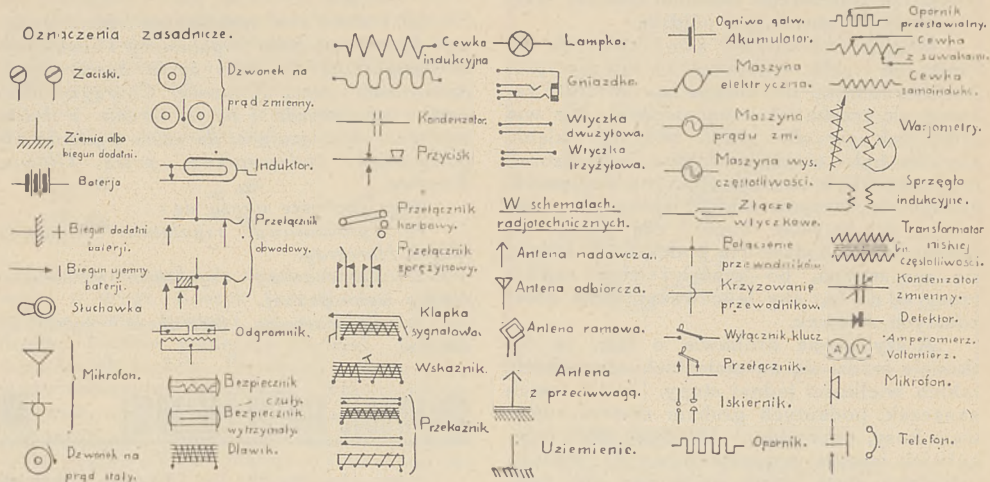 Oznaczenia zasadnicze.
Zaciski.
Ziemia albo
biegun dodatni.
Baterja
+ Biegun dodatni
baterji.
Biegun ujemny
baterji.
Słuchawka
Mikrofon.
Dzwonek na
prąd stały.
Dzwonek na
prąd zmienny.
Induktor.
Przełącznik
obwodowy.
Odgromnik.
Bezpiecznik
czuły.
Bezpiecznik
wytrzymały.
Dławik.
Cewka
indukcyjna
Kondenzator.
Przycisk
Przełącznik
korbowy.
Przełącznik
sprężynowy.
Klapka
sygnałowa.
Wskaźnik.
Przekaźnik
Lampka.
Gniazdko.
Wtyczka
dwużyłowa.
Wtyczka
trzyżyłowa.
W schematach.
radjotechnicznych.
Antena nadawcza.
Antena odbiorcza.
Antena ramowa.
Antena
z przeciwwagą.
Uziemienie.
Ogniwo galw.
Akumulator.
Maszyna
elektryczna.
Maszyna
prądu zm.
Maszyna wys.
częstotliwości.
Złącze
wtyczkowe.
Połączenie
przewodników
Krzyżowanie
przewodników.
Wyłącznik, klucz
Przełącznik.
Iskiernik.
Opornik.
Opornik
przestawialny.
Cewka
z suwakami.
Cewka
samoindukc.
Warjometry.
Sprzęgło
indukcyjne.
Transformator
niskiej
częstotliwości.
Kondenzator
zmienny.
Detektor.
A V Amperomierz.
Voltomierz.
Mikrofon.
Telefon.